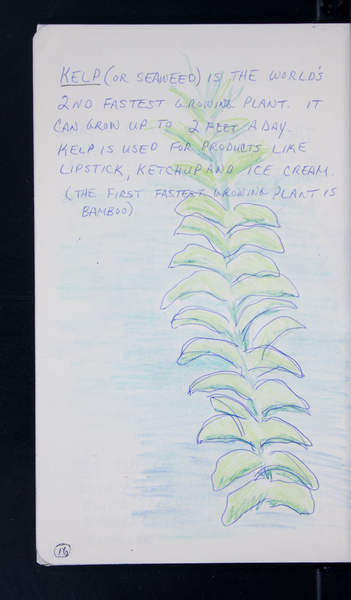 KELP (OR SEAWEED) IS THE WORLD'S
2ND FASTEST GROWING PLANT. IT
CAN GROW UP TO 2 FEET A DAY.
KELP IS USED FOR PRODUCTS LIKE
LIPSTICK, KETCHUP AND ICE CREAM.
(THE FIRST FASTEST GROWING PLANT IS
BAMBOO).
16